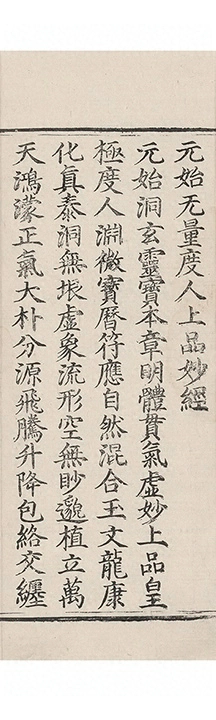 元始无量度人上品妙經
元始洞玄靈寶本章明體貫氣虛妙上品皇
極度人淵微寶曆符應自然混合玉文龍康
化真泰洞無垠虛象流形空無眇邈植立萬
天鴻濛正氣大朴分源飛騰升降包絡交纏